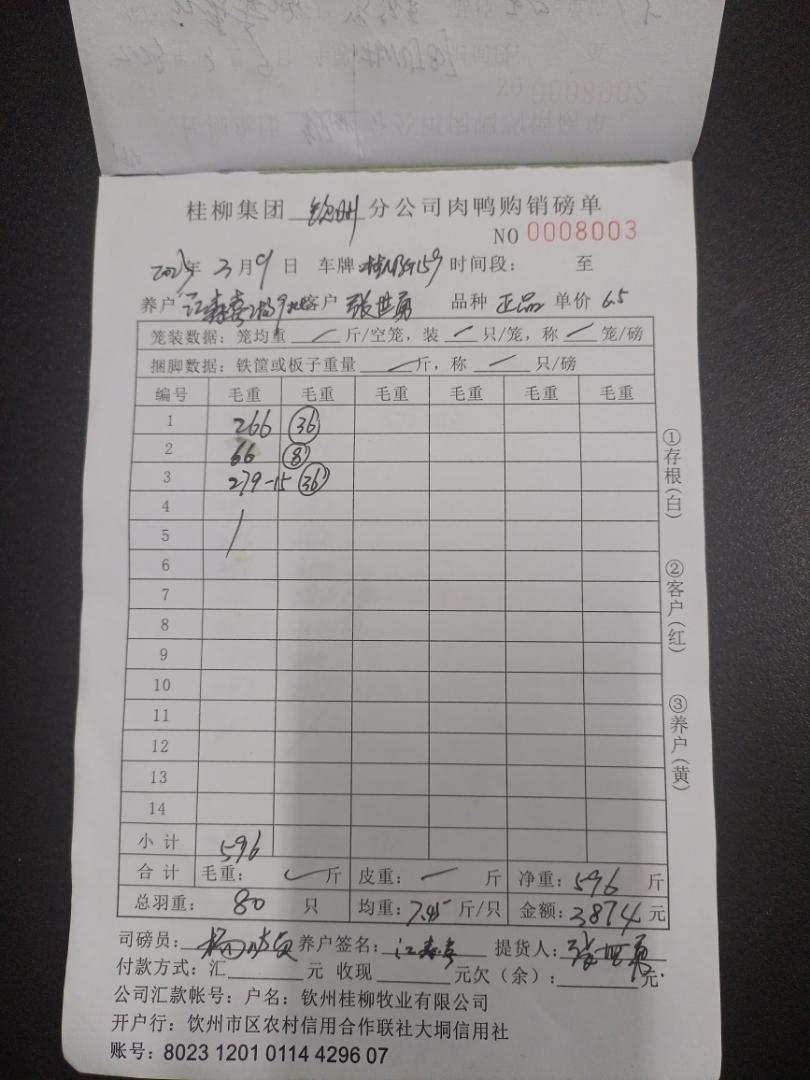 桂柳集团 钦州 分公司肉鸭购销磅单
NO 0008003
2025年 3月9日 车牌 159 时间段： 至
养户 江森喜 客户 张世勇 品种 正品 单价 6.5
笼装数据：笼均重 / 斤/空笼，装 / 只/笼，称 / 笼/磅
捆脚数据：铁筐或板子重量 / 斤，称 / 只/磅
编号 毛重 毛重 毛重 毛重 毛重 毛重
1 266 36
2 66 8
3 279-15 36
4
5
6
7
8
9
10
11
12
13
14
小计 596
合计 毛重： 斤 皮重： 斤 净重：596 斤
总羽重： 80 只 均重：7.45 斤/只 金额：3874 元
①存根（白）
②客户（红）
③养户（黄）
司磅员： 养户签名：江森喜 提货人：张世勇
付款方式：汇 元 收现 元欠（余）： 元
公司汇款帐号：户名：钦州桂柳牧业有限公司
开户行：钦州市区农村信用合作联社大垌信用社
账号：8023 1201 0114 4296 07